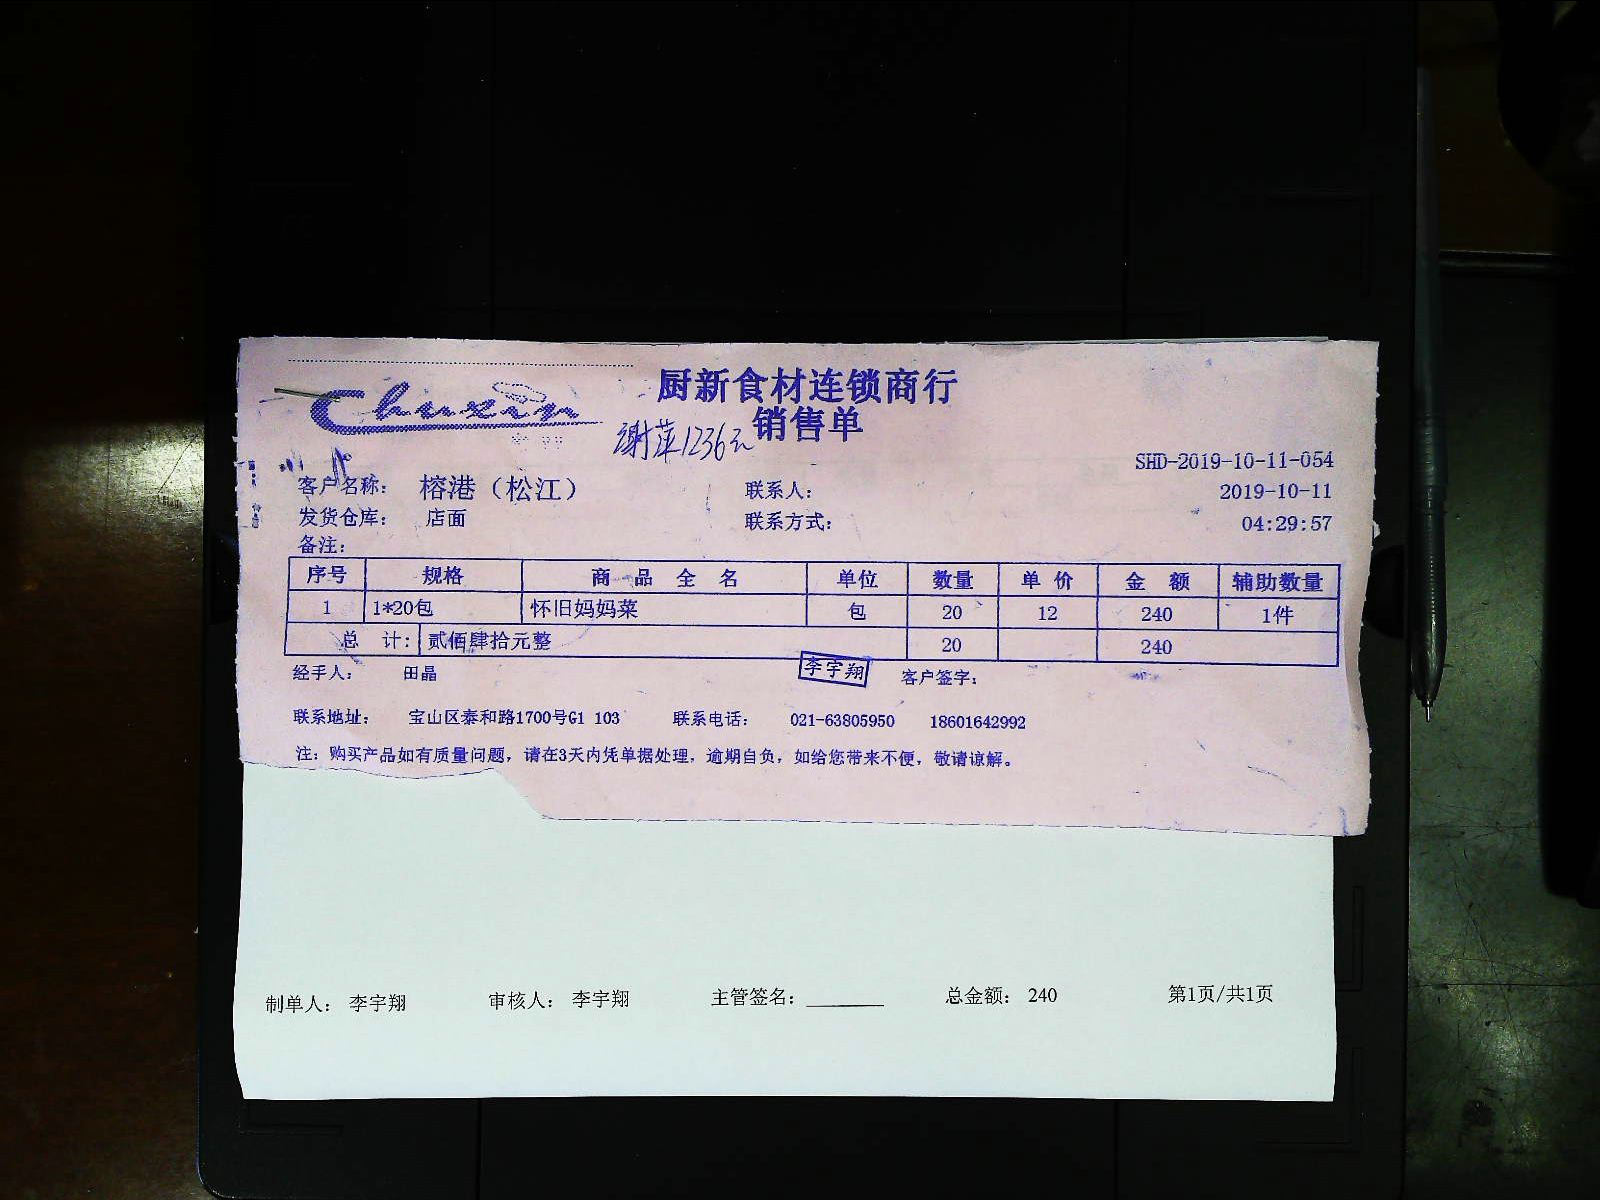 Chuxin
厨新食材连锁商行
销售单
谢萍1236元
SHD-2019-10-11-054
客户名称： 榕港（松江） 联系人： 2019-10-11
发货仓库： 店面 联系方式： 04:29:57
备注：
序号 规格 商 品 全 名 单位 数量 单 价 金 额 辅助数量
1 1*20包 怀旧妈妈菜 包 20 12 240 1件
总 计: 贰佰肆拾元整 20 240
经手人： 田晶 李宇翔 客户签字：
联系地址： 宝山区泰和路1700号G1 103 联系电话： 021-63805950 18601642992
注：购买产品如有质量问题，请在3天内凭单据处理，逾期自负，如给您带来不便，敬请谅解。
制单人： 李宇翔 审核人： 李宇翔 主管签名： 总金额： 240 第1页/共1页